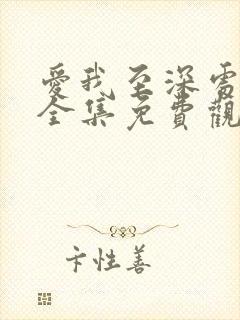 愛我至深電
全集免費觀
卞性善